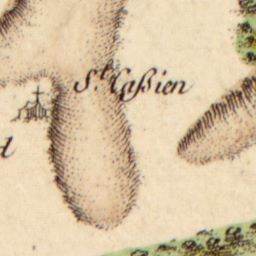 S.t Caßien
d